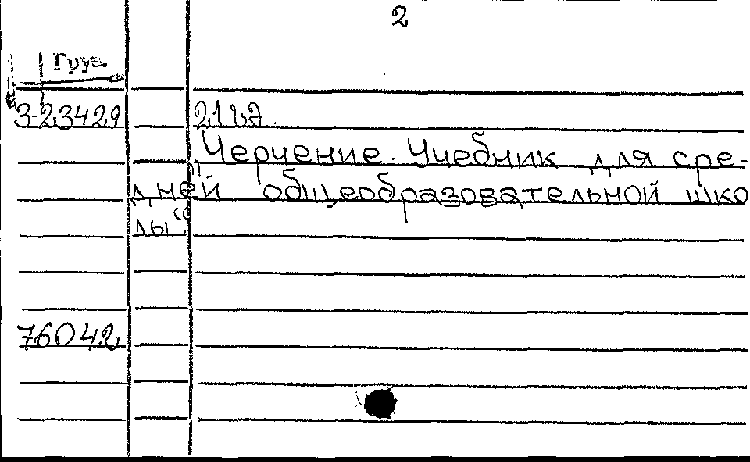 2
Груз.
3-23429
"Черчение. Учебник для сре-
дней общеобразовательной шко
лы"
76042